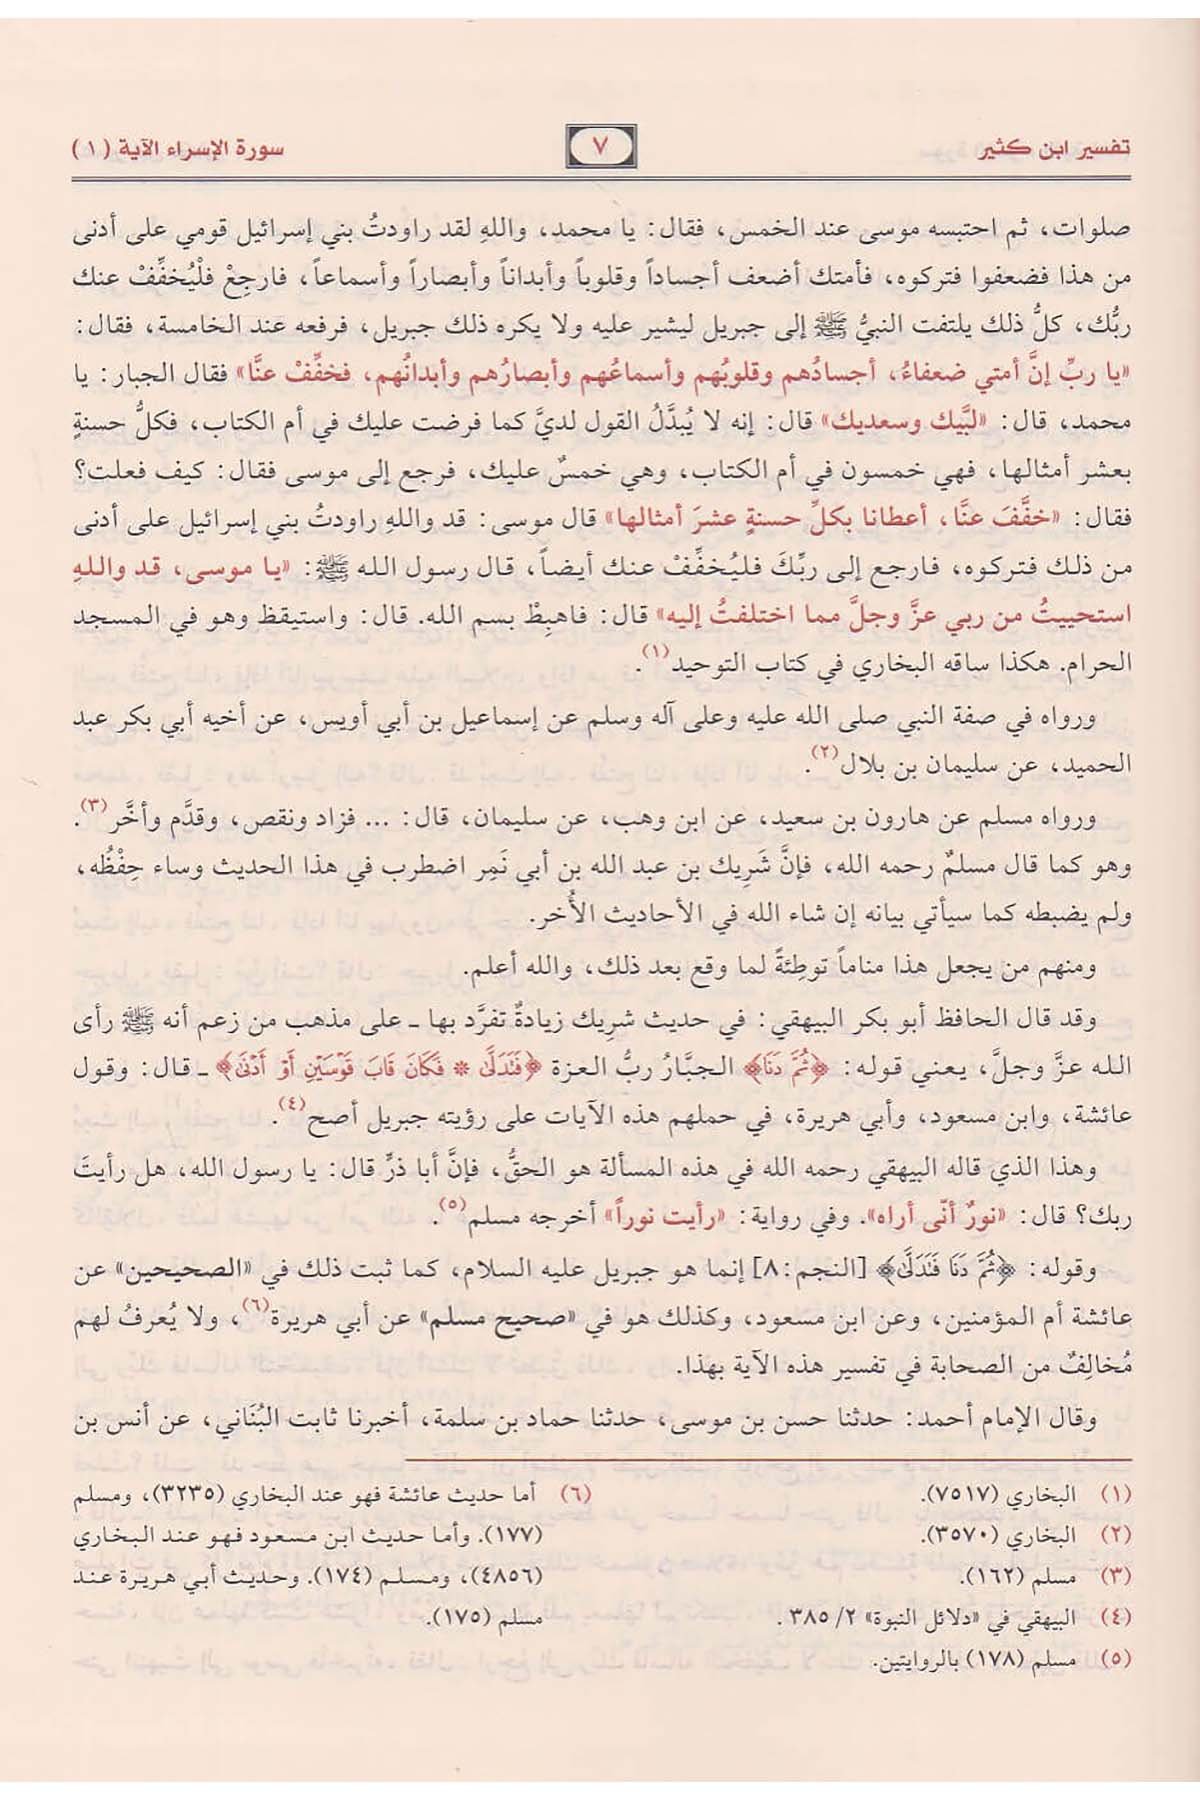 تفسير ابن كثير
٧
سورة الإسراء الآية (١)
صلوات، ثم احتبسه موسى عند الخمس، فقال: يا محمد، واللهِ لقد راودتُ بني إسرائيل قومي على أدنى
من هذا فضعفوا فتركوه، فأمتك أضعف أجساداً وقلوباً وأبداناً وأبصاراً وأسماعاً، فارجِعْ فلْيُخفِّفْ عنك
ربُّك، كلُّ ذلك يلتفت النبيُّ ﷺ إلى جبريل ليشير عليه ولا يكره ذلك جبريل، فرفعه عند الخامسة، فقال:
«يا ربِّ إنَّ أمتي ضعفاءُ، أجسادُهم وقلوبُهم وأسماعُهم وأبصارُهم وأبدانُهم، فخفِّفْ عنَّا» فقال الجبار: يا
محمد، قال: «لبَّيك وسعديك» قال: إنه لا يُبدَّلُ القول لديَّ كما فرضت عليك في أم الكتاب، فكلُّ حسنةٍ
بعشر أمثالها، فهي خمسون في أم الكتاب، وهي خمسٌ عليك، فرجع إلى موسى فقال: كيف فعلت؟
فقال: «خفَّفَ عنَّا، أعطانا بكلِّ حسنةٍ عشرَ أمثالها» قال موسى: قد واللهِ راودتُ بني إسرائيل على أدنى
من ذلك فتركوه، فارجع إلى ربِّكَ فليُخفِّفْ عنك أيضاً، قال رسول الله ﷺ: «يا موسى، قد واللهِ
استحييتُ من ربي عزَّ وجلَّ مما اختلفتُ إليه» قال: فاهبِطْ بسم الله. قال: واستيقظ وهو في المسجد
الحرام. هكذا ساقه البخاري في كتاب التوحيد(١).
ورواه في صفة النبي صلى الله عليه وعلى آله وسلم عن إسماعيل بن أبي أويس، عن أخيه أبي بكر عبد
الحميد، عن سليمان بن بلال(٢).
ورواه مسلم عن هارون بن سعيد، عن ابن وهب، عن سليمان، قال: ... فزاد ونقص، وقدَّم وأخَّر(٣).
وهو كما قال مسلمٌ رحمه الله، فإنَّ شَرِيك بن عبد الله بن أبي نَمِر اضطرب في هذا الحديث وساء حِفْظُه،
ولم يضبطه كما سيأتي بيانه إن شاء الله في الأحاديث الأُخر.
ومنهم من يجعل هذا مناماً توطِئةً لما وقع بعد ذلك، والله أعلم.
وقد قال الحافظ أبو بكر البيهقي: في حديث شرِيك زيادةٌ تفرَّد بها ـ على مذهب من زعم أنه ﷺ رأى
الله عزَّ وجلَّ، يعني قوله: ﴿ثُمَّ دَنَا﴾ الجبَّارُ ربُّ العزة ﴿فَتَدَلَّىٰ * فَكَانَ قَابَ قَوْسَيْنِ أَوْ أَدْنَىٰ﴾ ـ قال: وقول
عائشة، وابن مسعود، وأبي هريرة، في حملهم هذه الآيات على رؤيته جبريل أصح(٤).
وهذا الذي قاله البيهقي رحمه الله في هذه المسألة هو الحقُّ، فإنَّ أبا ذرٍّ قال: يا رسول الله، هل رأيتَ
ربك؟ قال: «نورٌ أنّى أراه». وفي رواية: «رأيت نوراً» أخرجه مسلم(٥).
وقوله: ﴿ثُمَّ دَنَا فَتَدَلَّىٰ﴾ [النجم: ٨] إنما هو جبريل عليه السلام، كما ثبت ذلك في «الصحيحين» عن
عائشة أم المؤمنين، وعن ابن مسعود، وكذلك هو في «صحيح مسلم» عن أبي هريرة(٦)، ولا يُعرفُ لهم
مُخالِفٌ من الصحابة في تفسير هذه الآية بهذا.
وقال الإمام أحمد: حدثنا حسن بن موسى، حدثنا حماد بن سلمة، أخبرنا ثابت البُنَاني، عن أنس بن
(١) البخاري (٧٥١٧).
(٢) البخاري (٣٥٧٠).
(٣) مسلم (١٦٢).
(٤) البيهقي في «دلائل النبوة» ٢/ ٣٨٥ .
(٥) مسلم (١٧٨) بالروايتين.
(٦) أما حديث عائشة فهو عند البخاري (٣٢٣٥)، ومسلم
(١٧٧). وأما حديث ابن مسعود فهو عند البخاري
(٤٨٥٦)، ومسلم (١٧٤). وحديث أبي هريرة عند
مسلم (١٧٥).